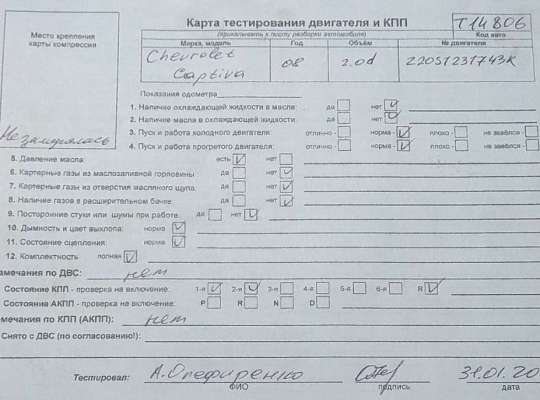 Место крепления
карты компрессии
Не замерялась
Карта тестирования двигателя и КПП
(прикалывать к листу разборки автомобиля)
Т14806
Код авто
Марка, модель Год Объём № двигателя
Chevrolet Captiva 08 2.0d 22051231743K
Показания одометра
1. Наличие охлаждающей жидкости в масле: да нет
2. Наличие масла в охлаждающей жидкости: да нет
3. Пуск и работа холодного двигателя: отлично - норма - плохо - не завёлся -
4. Пуск и работа прогретого двигателя: отлично - норма - плохо - не завёлся -
5. Давление масла: есть нет
6. Картерные газы из маслозаливной горловины да нет
7. Картерные газы из отверстия маслянного щупа. да нет
8. Наличие газов в расширительном бачке: да нет
9. Посторонние стуки или шумы при работе: да нет
10. Дымность и цвет выхлопа: норма
11. Состояние сцепления: норма
12. Комплектность полная
мечания по ДВС: нет
Состояние КПП - проверка на включение: 1-я 2-я 3-я 4-я 5-я 6-я R
Состояние АКПП - проверка на включение: P R N D
мечания по КПП (АКПП): нет
Снято с ДВС (по согласованию!):
Тестировал: А.Олефиренко 31.01.20
ФИО подпись дата